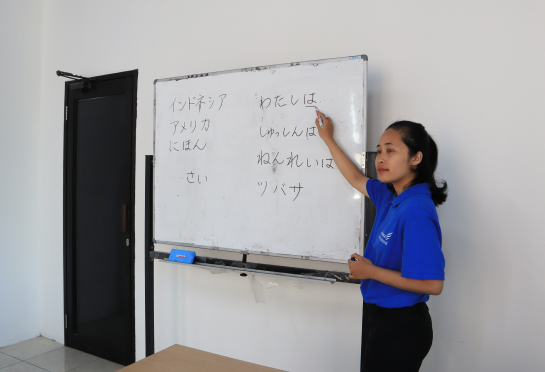 インドネシア
アメリカ
にほん
さい
わたしは
しゅっしんは
ねんれいは
ツバサ